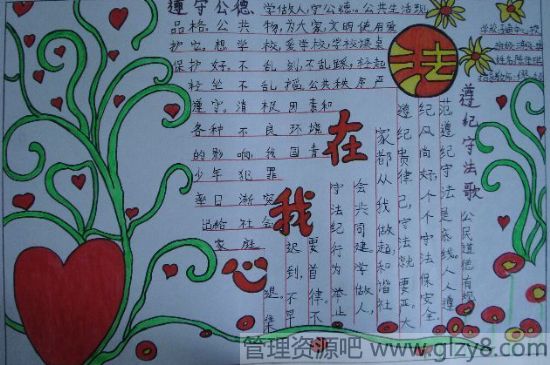 遵守公德
学做人,守公德。公共生活观
品格。公共物,为大家,文明使用爱
护它。想学校,爱学校,学校课桌
保护好。不乱刻,不乱踩,轻起
轻坐不乱摇。公共秩序严
遵守。清权用素和
各种不良环境
的影响,我国青
少年犯罪
率日渐突
出给社会
家庭
法在我心
遵纪守法歌
公民道德有规
范遵纪守法是底线。人人遵
纪风尚好,个个守法保安全。
遵纪贵律己守法就要正。大
家都从我做起,和谐社
会共同建。学做人,
守法纪行为举止
要首律。不
迟到,不早
退。集
管理资源吧 www.glzy8.com